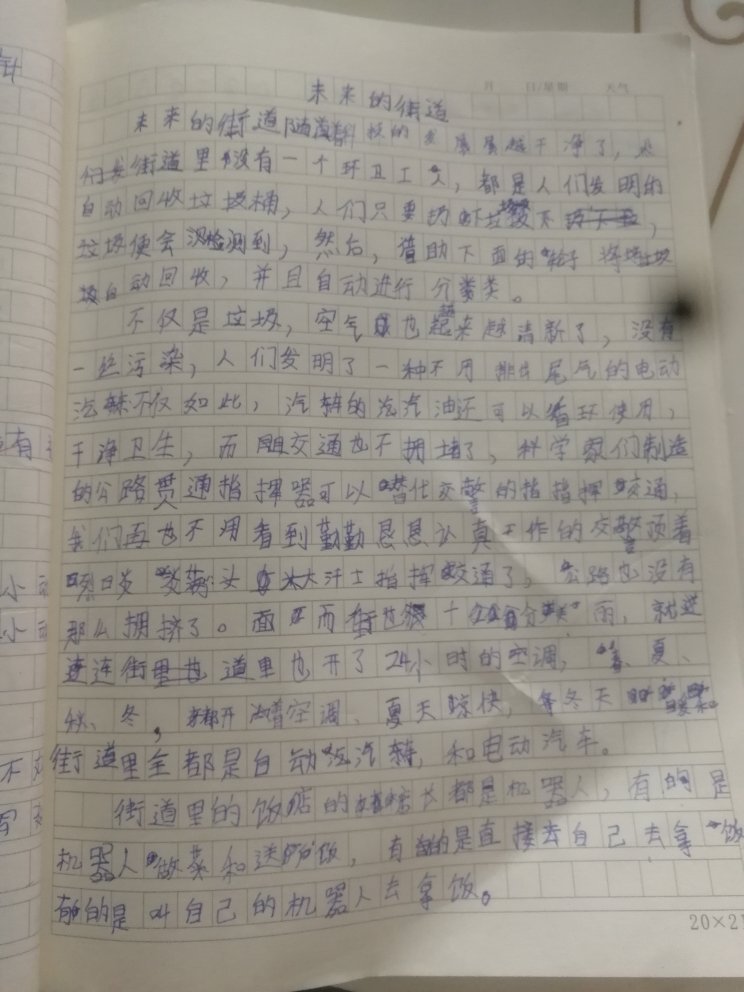 月 日/星期 天气
未来的街道
未来的街道随着科技的发展越干净了，
街道里没有一个环卫工人，都是人们发明的
自动回收垃圾桶，人们只要扔下垃圾
垃圾便会检测到，然后，借助下面的轮子将垃圾
自动回收，并且自动进行分类。
不仅是垃圾，空气也越来越清新了，没有
一丝污染，人们发明了一种不用排出尾气的电动
汽车不仅如此，汽车的汽油还可以循环使用，
干净卫生，而且交通也不拥堵了，科学家们制造
的公路贯通指挥器可以替代交警的指挥交通，
我们再也不用看到勤勤恳恳认真工作的交警顶着
炎 头大汗 指挥交通了，公路也没有
那么拥挤了。而 街 也 十分 丽，就
连街道里也开了24小时的空调，春、夏、
秋、冬，都开着空调、夏天凉快，冬天暖和
街道里全都是自动汽车，和电动汽车。
街道里的饭店的 长都是机器人，有的是
机器人做菜和送饭，有的是直接去自己去拿饭
有的是叫自己的机器人去拿饭。
20×2
有
小
小
不